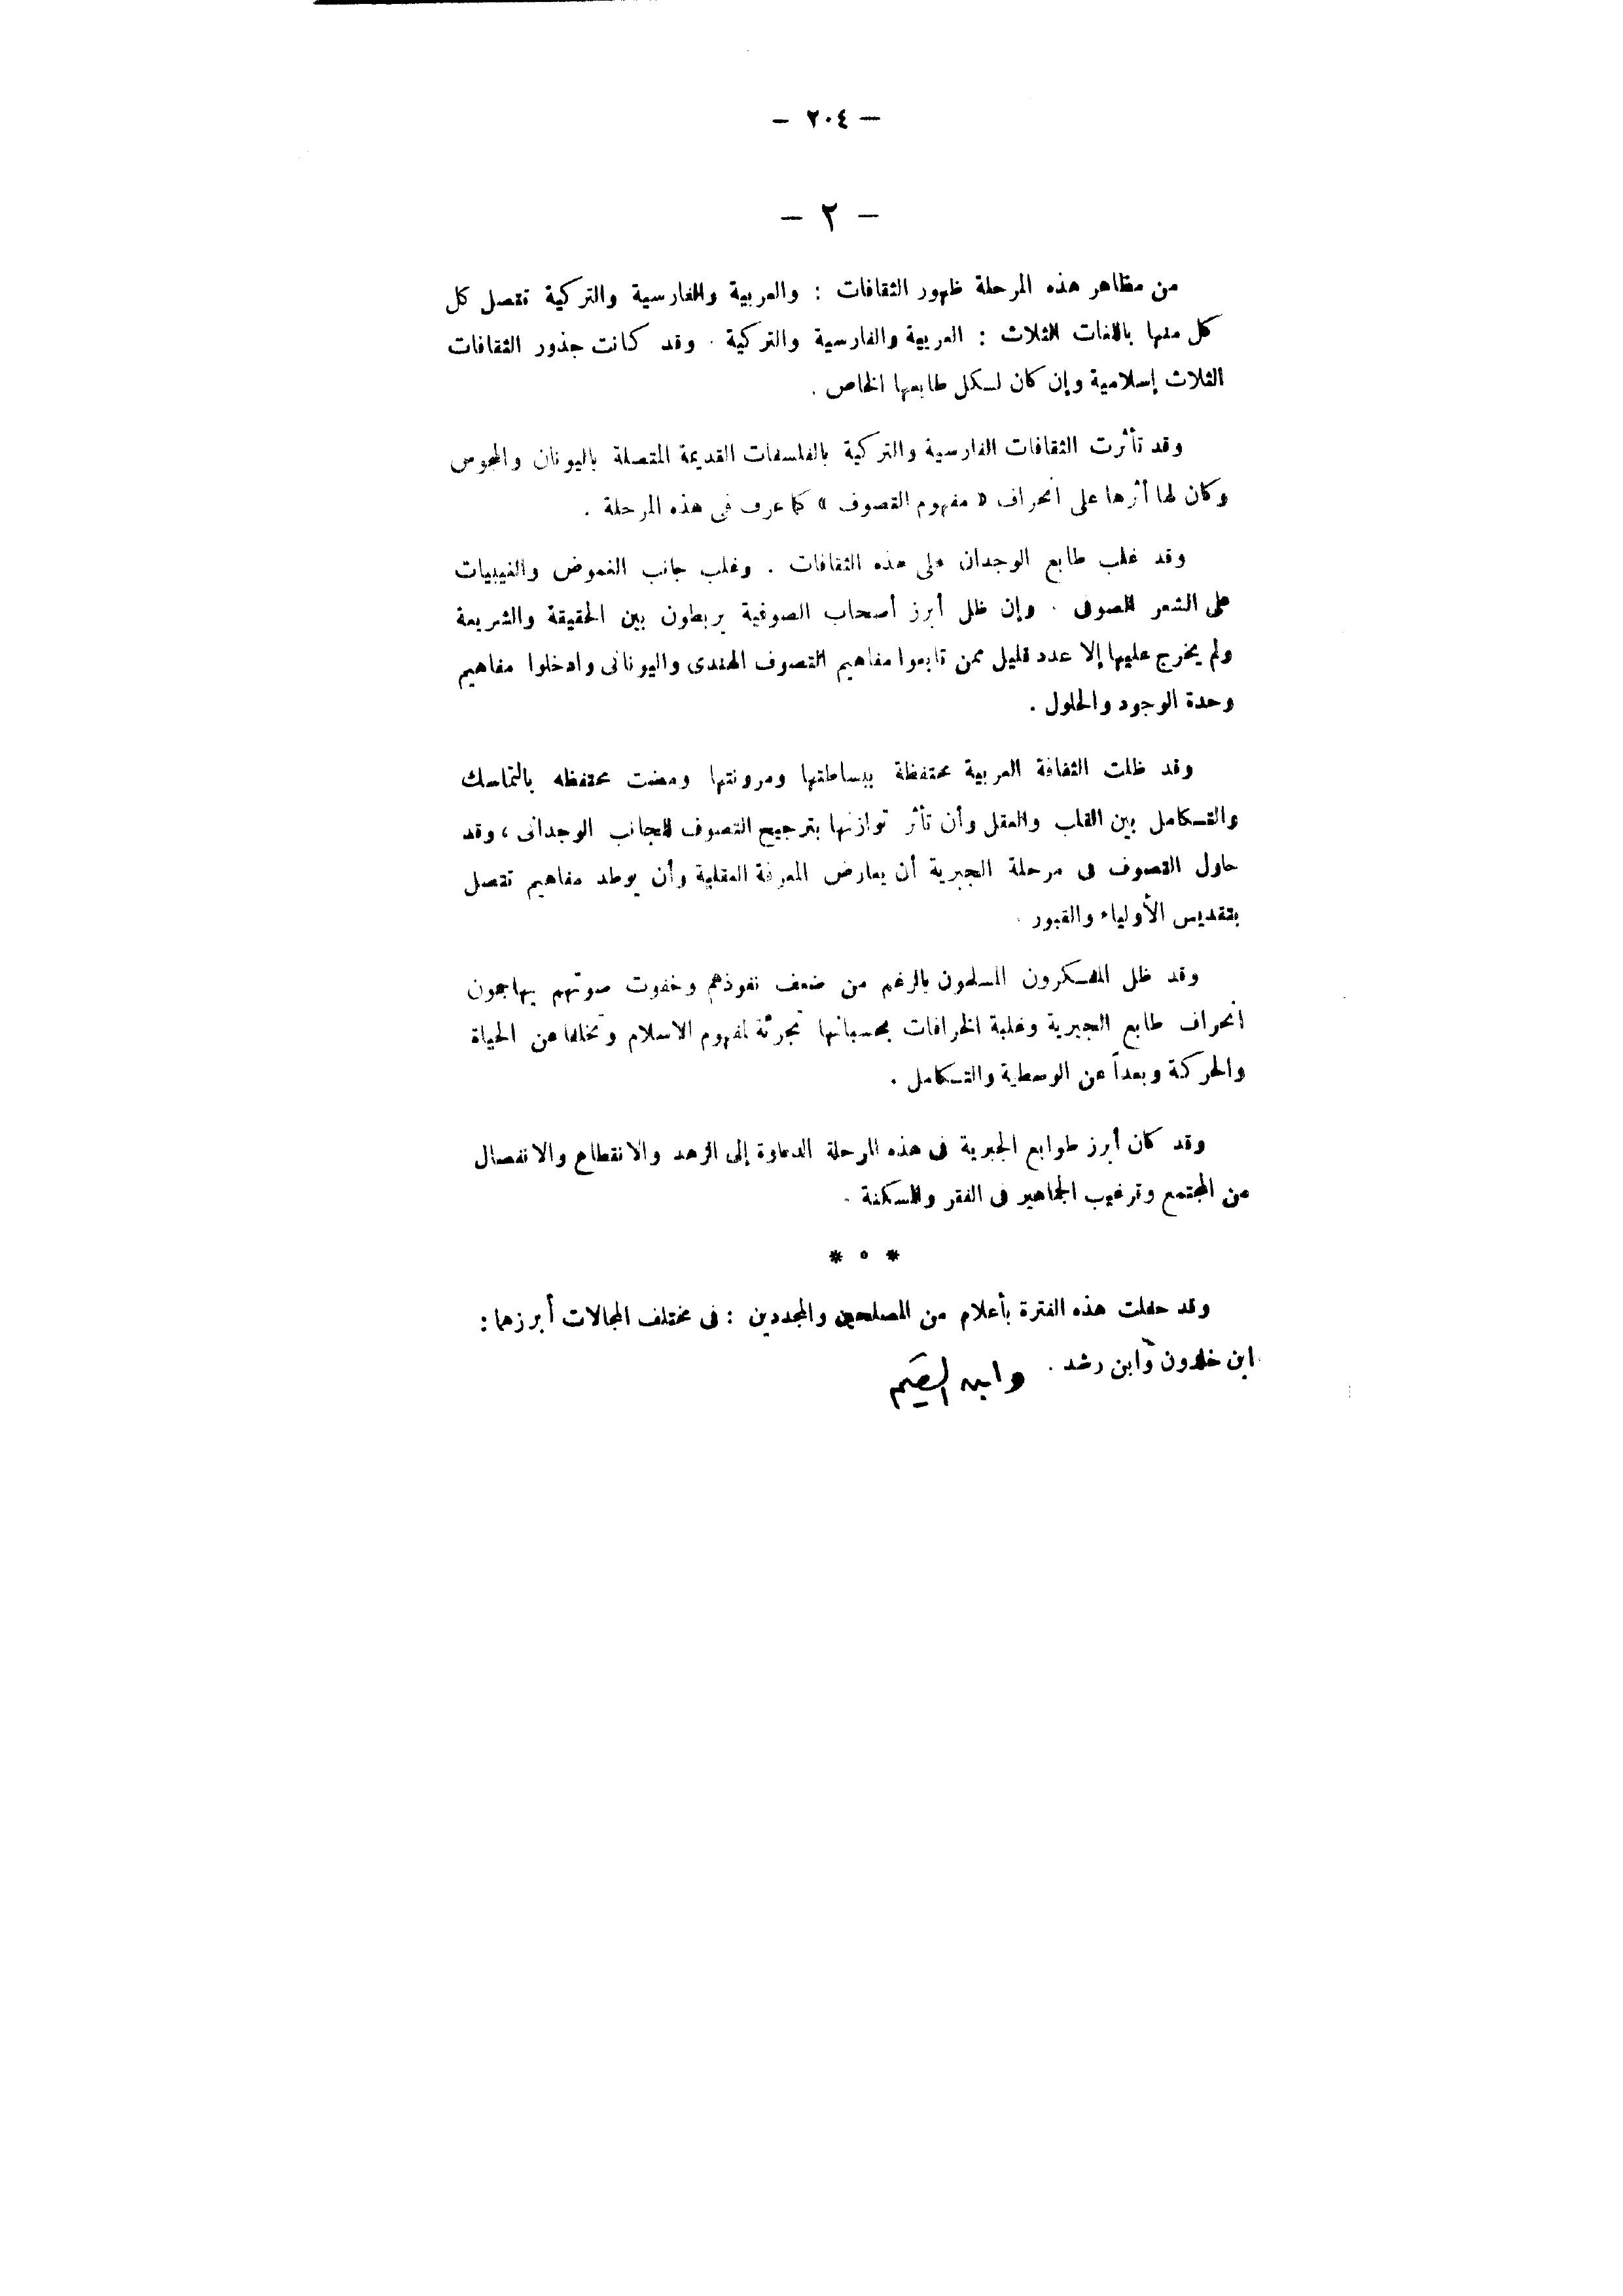 — ٢٠٤ —
— ٢ —
من مظاهر هذه المرحلة ظهور الثقافات : والعربية والفارسية والتركية تتصل كل
كل منها باللغات الثلاث : العربية والفارسية والتركية . وقد كانت جذور الثقافات
الثلاث إسلامية وإن كان لكل طابعها الخاص .
وقد تأثرت الثقافات الفارسية والتركية بالفلسفات القديمة المتصلة باليونان والمجوس
وكان لها أثرها على انحراف « مفهوم التصوف » كما عرف فى هذه المرحلة .
وقد غلب طابع الوجدان على هذه الثقافات . وغلب جانب الغموض والغيبيات
على الشعر الصوفى . وإن ظل أبرز أصحاب الصوفية يربطون بين الحقيقة والشريعة
ولم يخرج عليها إلا عدد قليل ممن تابعوا مفاهيم التصوف الهندى واليونانى وادخلوا مفاهيم
وحدة الوجود والحلول .
وقد ظلت الثقافة العربية محتفظة ببساطتها ومرونتها ومضت محتفظه بالتماسك
والتكامل بين القلب والعقل وأن تأثر توازنها بترجيح التصوف للجانب الوجدانى ، وقد
حاول التصوف فى مرحلة الجبرية أن يعارض المعرفة العقلية وأن يوطد مفاهيم تتصل
بتقديس الأولياء والقبور .
وقد ظل المفكرون المسلمون بالرغم من ضعف نفوذهم وخفوت صوتهم يهاجمون
انحراف طابع الجبرية وغلبة الخرافات بحسبانها تجزئة لمفهوم الاسلام وتخلفا عن الحياة
والحركة وبعداً عن الوسطية والتكامل .
وقد كان أبرز طوابع الجبرية فى هذه المرحلة الدعاوة إلى الزهد والانقطاع والانفصال
من المجتمع وترغيب الجماهير فى الفقر والمسكنة .
* ° *
وقد حفلت هذه الفترة بأعلام من المصلحين والمجددين : فى مختلف المجالات أبرزهما :
ابن خلدون وابن رشد . وابن القيم